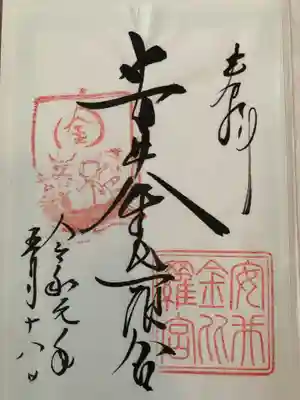 奉拝
安井金比羅宮
金
安井
金比
羅宮
令和元年
五月十八日